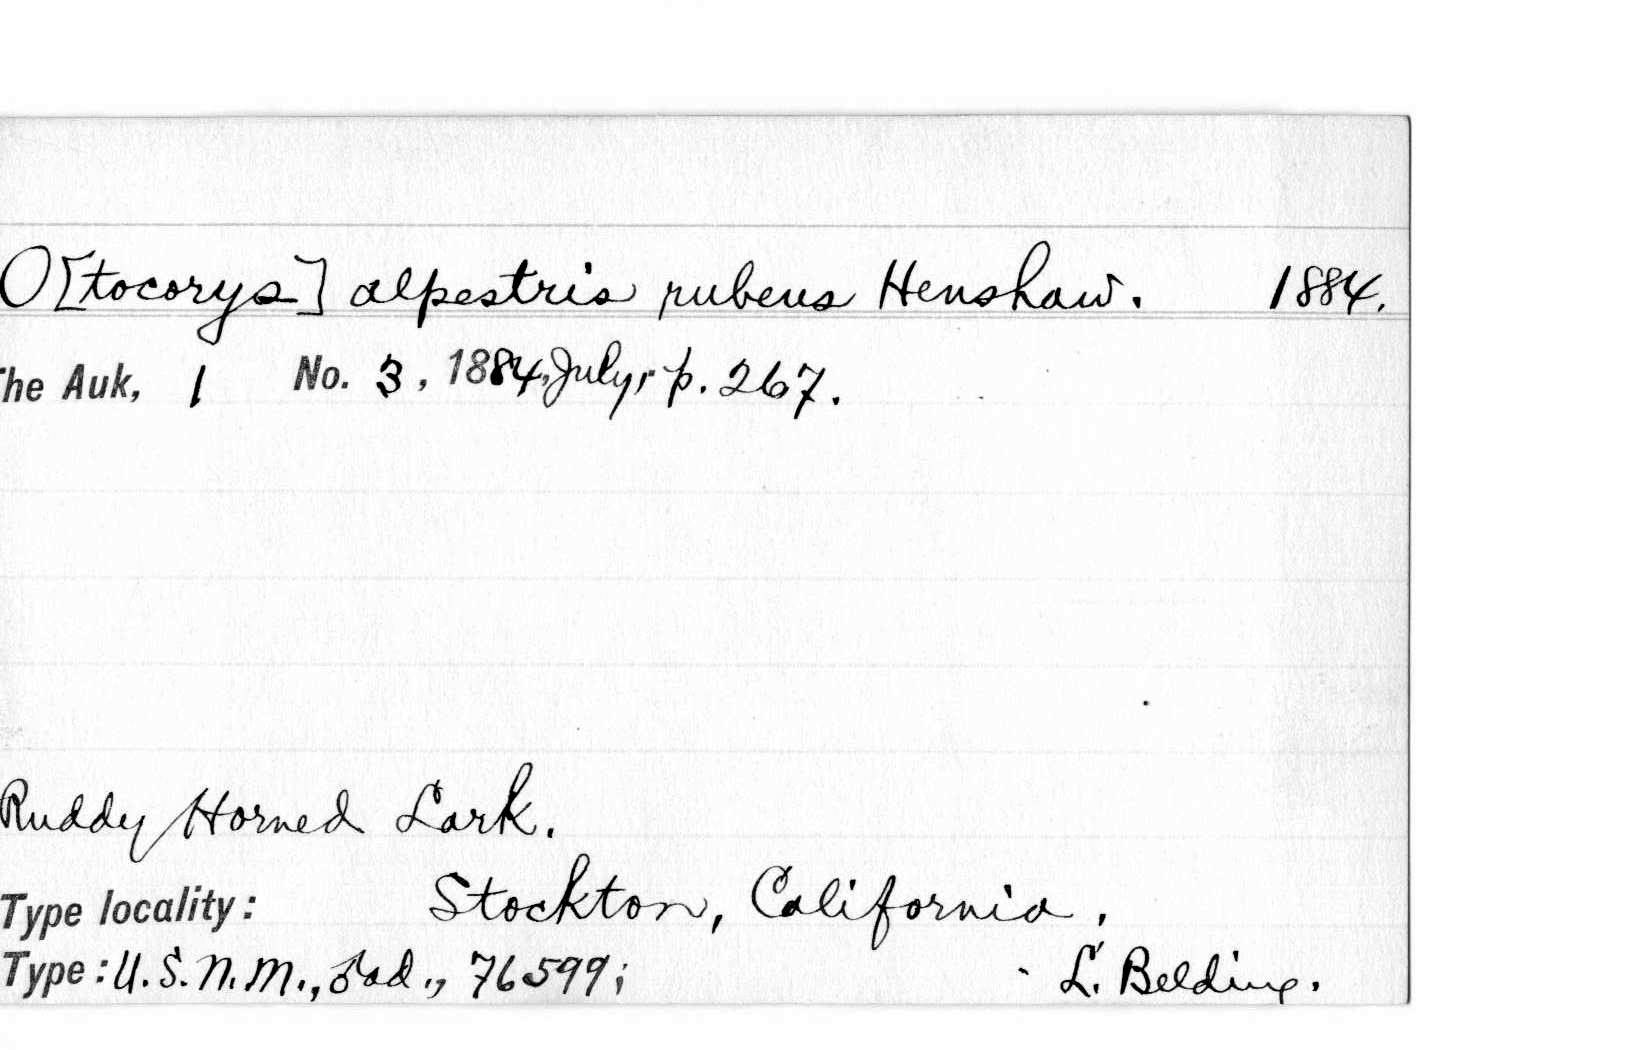 O[tocorys] alpestris rubeus Henshaw. 1884.
The Auk, 1 No. 3, 1884, July, p. 267.
Ruddy Horned Lark.
Type locality: Stockton, California.
Type: U.S.N.M., ♂ad., 76599; L. Belding.